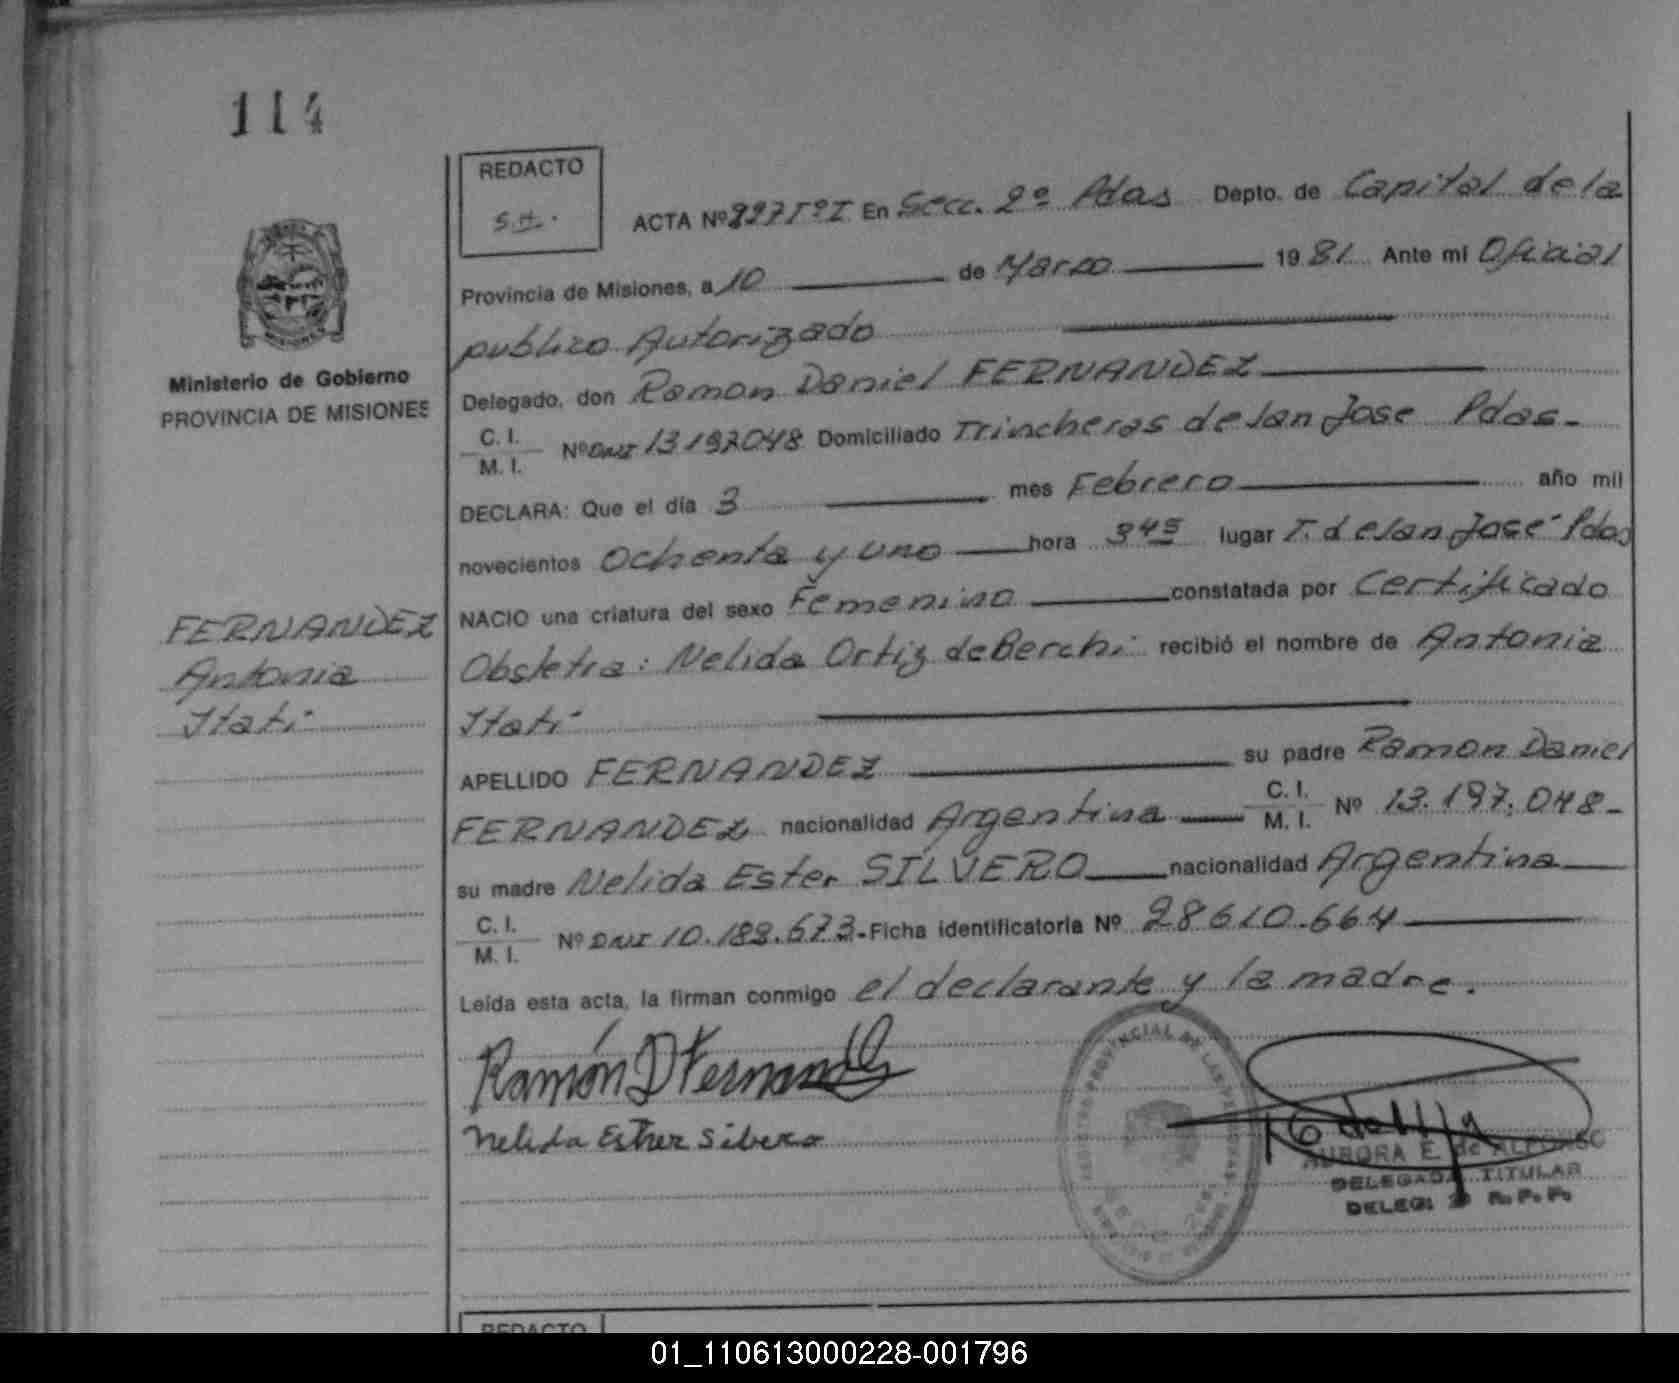 114
REDACTO
S.H.
ACTA Nº 227 Tº I En Secc. 2º Pdas Depto. de Capital de la
Provincia de Misiones, a 10 de Marzo 1981. Ante mi Oficial
publico Autorizado
Ministerio de Gobierno
PROVINCIA DE MISIONES
Delegado, don Ramon Daniel FERNANDEZ
C. I.
M. I. Nº DNI 13197048 Domiciliado Trincheras de San Jose Pdas-
DECLARA: Que el día 3 mes Febrero año mil
novecientos Ochenta y uno hora 3 45 lugar T. de San José Pdas
NACIO una criatura del sexo Femenino constatada por Certificado
FERNANDEZ
Antonia
Itatí
Obstetra: Nelida Ortiz de Berchi recibió el nombre de Antonia
Itatí
APELLIDO FERNANDEZ su padre Ramon Daniel
FERNANDEZ nacionalidad Argentina C. I.
M. I. Nº 13.197.048-
su madre Nelida Ester SILVERO nacionalidad Argentina
C. I.
M. I. Nº DNI 10.189.673- Ficha identificatoria Nº 28610.664
Leída esta acta, la firman conmigo el declarante y la madre.
Ramón D Fernandez
Nelida Esther Silvero
AURORA E. de ALFONSO
DELEGADA TITULAR
DELEG: 2 R.P.P.
REDACTO
01_110613000228-001796